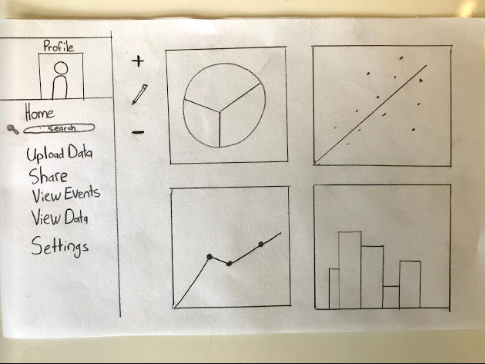 Profile
Home
Search
Upload Data
Share
View Events
View Data
Settings